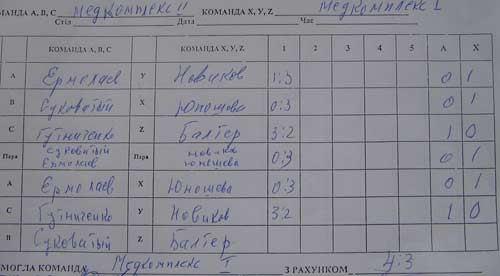 МАНДА А, В, С Медкомплекс II КОМАНДА X, Y, Z Медкомплекс I
Стіл Дата Час
КОМАНДА А, В, С КОМАНДА X, Y, Z 1 2 3 4 5 А X
А Ермолаев У Новиков 1:3 0 1
В Суковатый X Юношева 0:3 0 1
С Гутниченко Z Балтер 3:2 1 0
Пара Суковатый Ермолаев Пара Новиков Юношева 0:3 0 1
А Ермолаев X Юношева 0:3 0 1
С Гутниченко У Новиков 3:2 1 0
В Суковатый Z Балтер
МОГЛА КОМАНДА Медкомплекс I З РАХУНКОМ 4:3